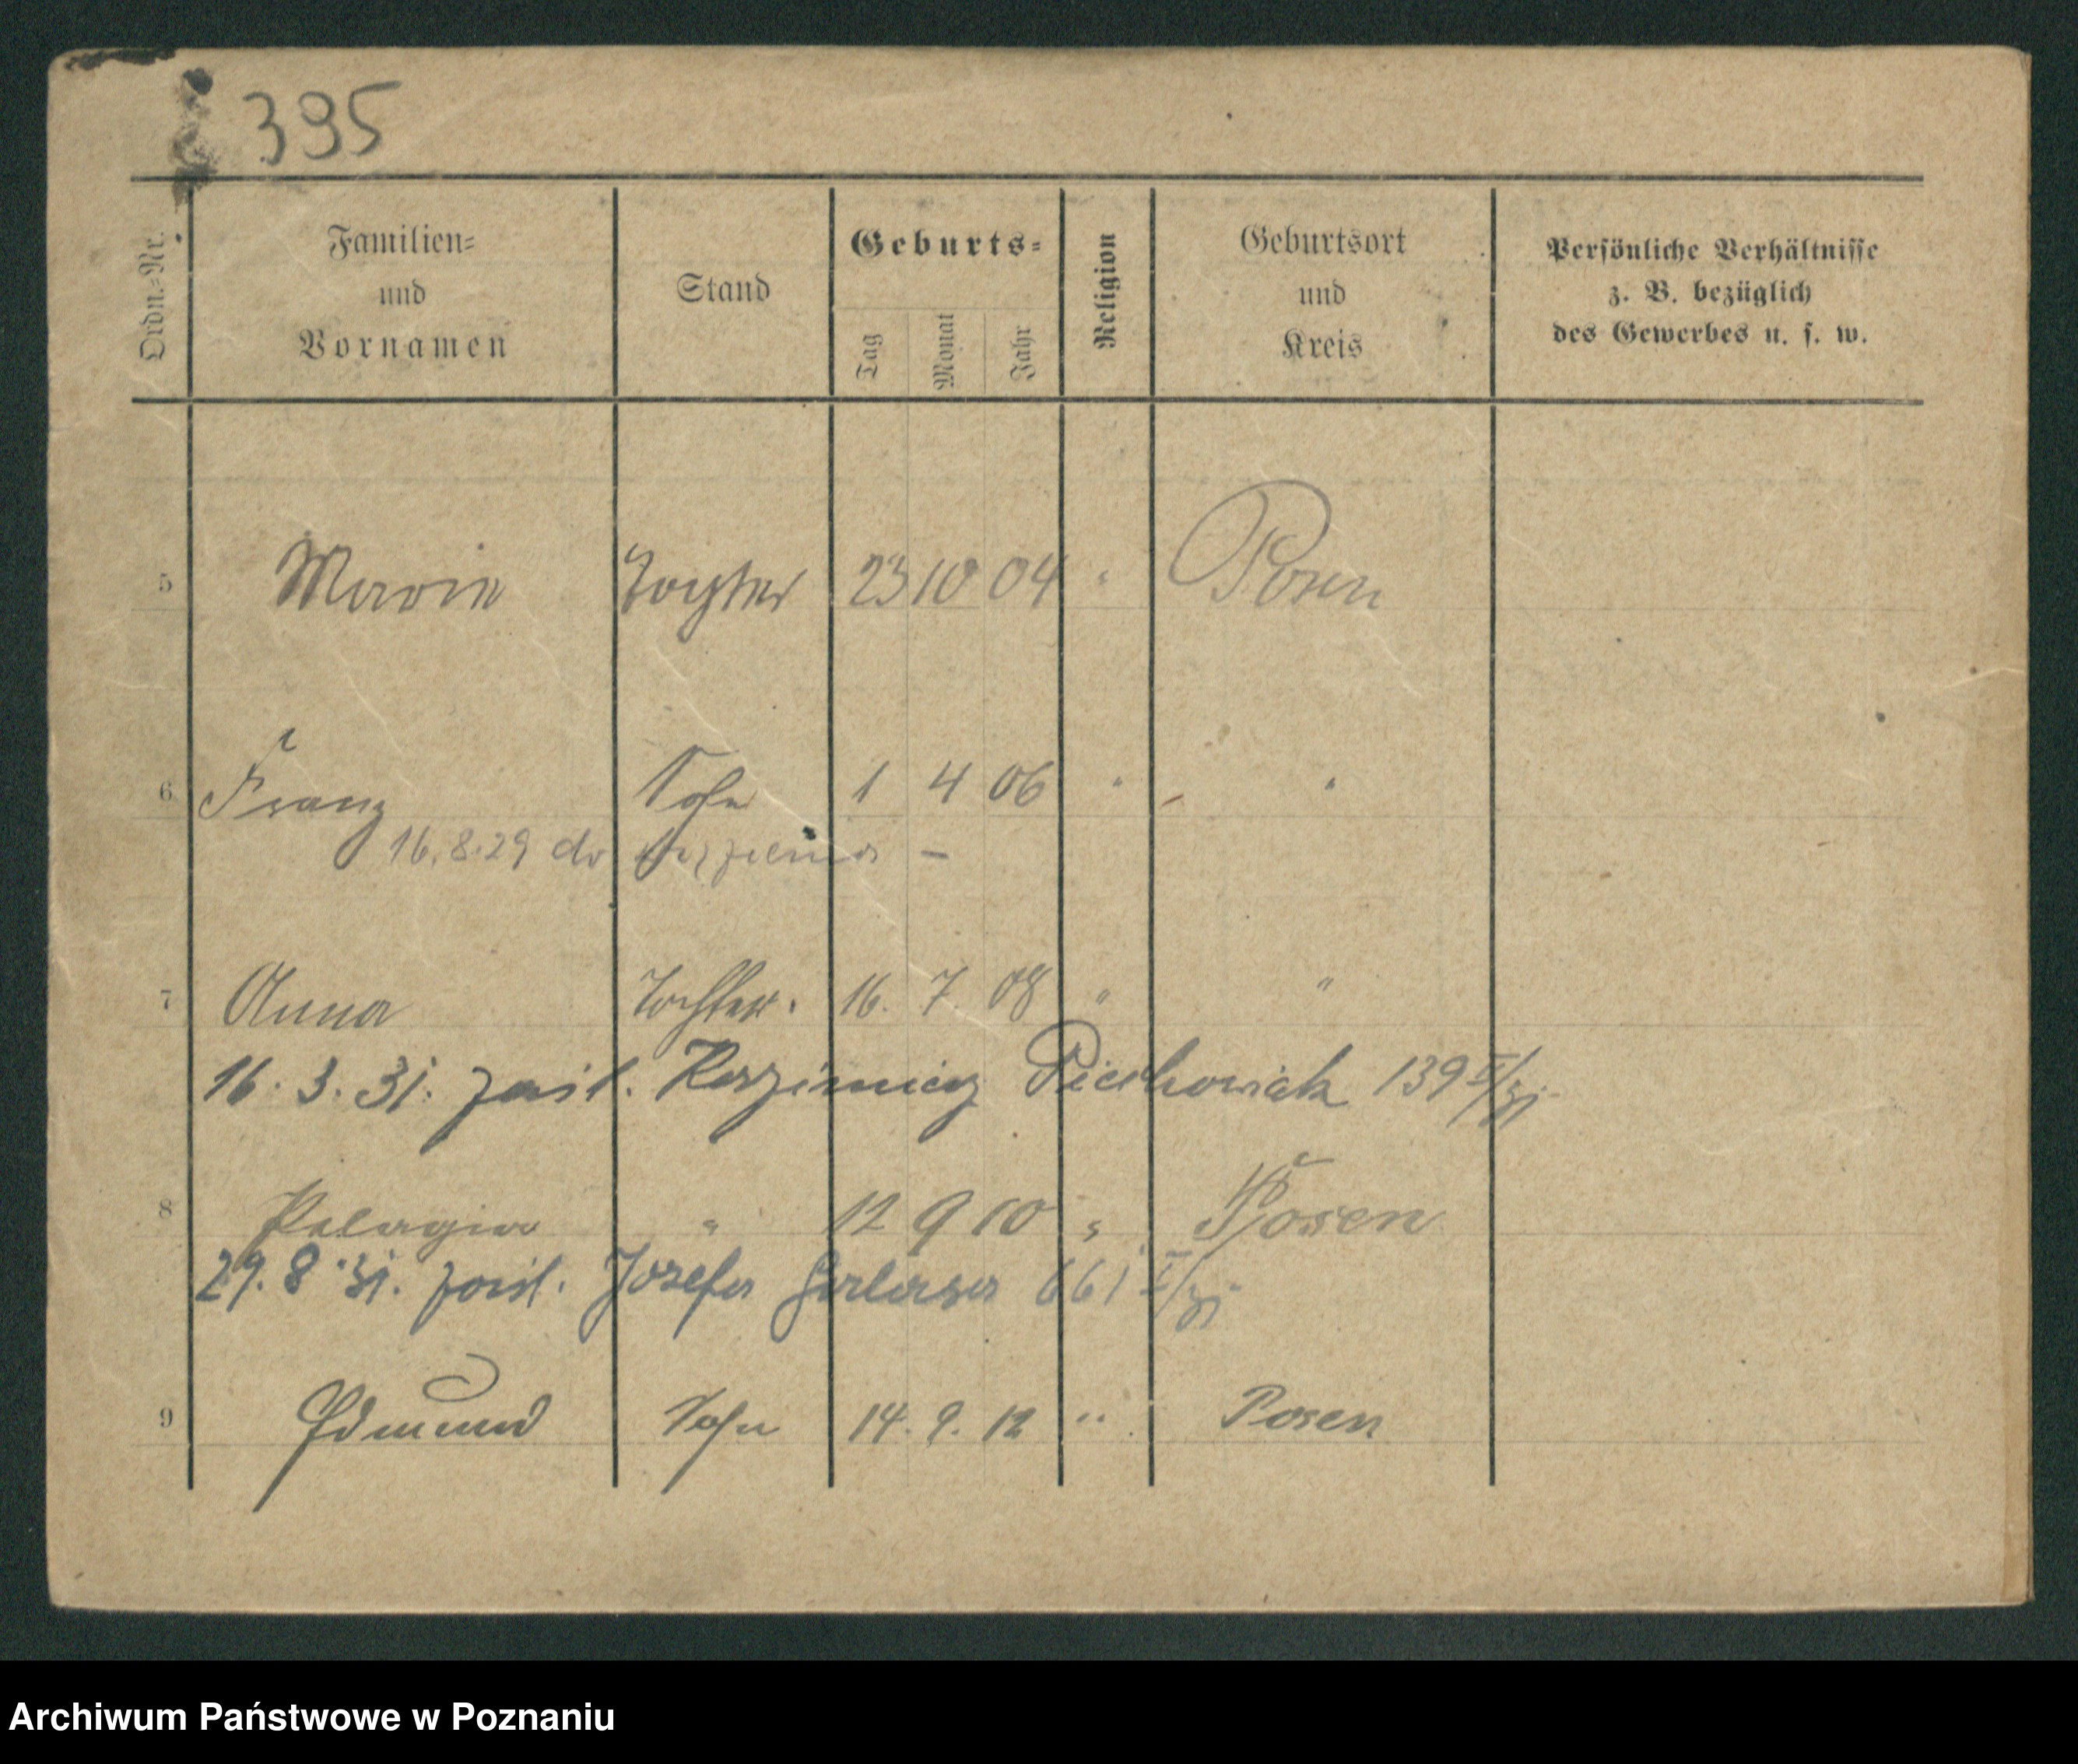 395
Ordn.-Nr.
Familien-
und
Vornamen
Stand
Geburts-
Tag Monat Jahr
Religion
Geburtsort
und
Kreis
Persönliche Verhältnisse
z. B. bezüglich
des Gewerbes u. s. w.
5 Marie Tochter 23 10 04 " Posen
6 Franz Sohn 1 4 06 " "
16.8.29 do
7 Anna Tochter. 16. 7. 08 " "
16. 3. 31. zaśl. Kazimierz Piechowiak 139 I/31
8 Pelagia " 12 9 10 " Posen
29. 8. 31. zaśl. Józefa 661 I/31
9 Edmund Sohn 14. 9. 12 " Posen
Archiwum Państwowe w Poznaniu